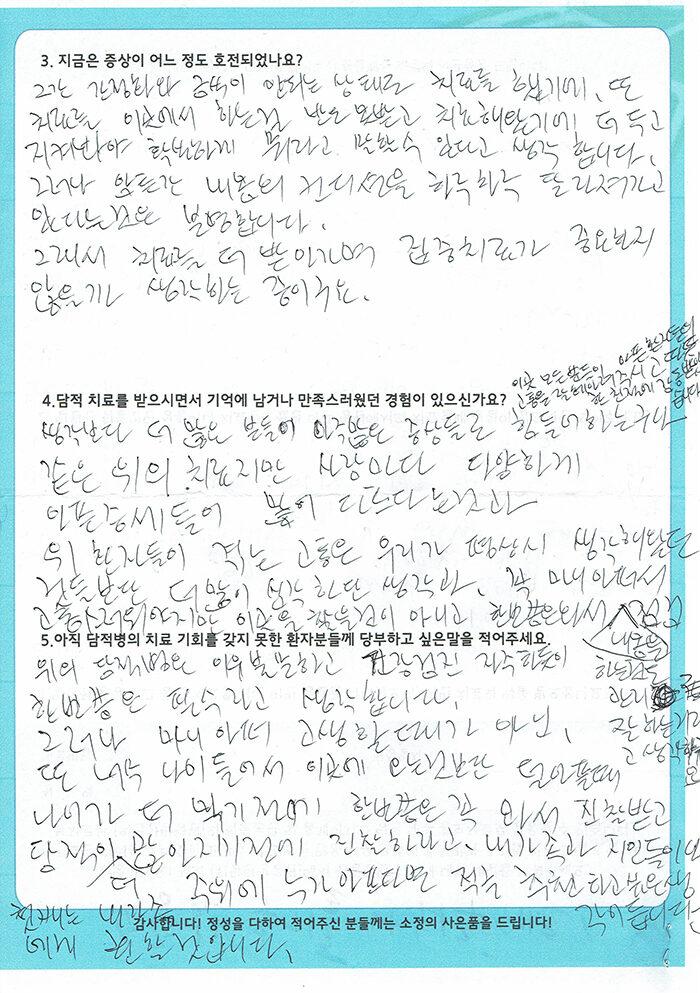 3. 지금은 증상이 어느 정도 호전되었나요?
치료를 했기에, 또
치료를 이곳에서 하는걸 받고 치료해왔기에 더 두고
지켜봐야 확실하게 뭐라고 말할수 있다고 생각 합니다.
그러나 내몸의 컨디션을 하루하루 달라져가고
있다는것은 분명합니다.
그래서 치료를 더 받아가며 집중치료가 중요하지
않을까 생각하는 중이구요.
4.담적 치료를 받으시면서 기억에 남거나 만족스러웠던 경험이 있으신가요?
이곳 모든분들이 아픈 환자들의
고통을 잘 헤아려주시고 따뜻
한 친절에 감동받았
습니다
생각보다 더 많은 분들이 증상들로 힘들어하는구나
같은 위의 치료지만 사람마다 다양하게
아픈증세들이 다르다는것과
위 환자들이 겪는 고통은 우리가 평상시 생각해왔던
것들보단 더많이 심각하단 생각과, 꼭 많이아파서
고통스러워야지만 이곳을 찾을것이 아니고 한번쯤은와서 점검
5.아직 담적병의 치료 기회를 갖지 못한 환자분들께 당부하고 싶은말을 적어주세요.
내몸을
위의 담적병은 이유불문하고 건강검진 하듯이 하는것들
한번쯤은 필수라고 생각합니다. 관리
그러나 많이 아퍼 고생할때가 아닌, 잘하는거
라고 생각해
요
또 너무 나이들어서 이곳에 오는것보단 덜아플때
나이가 더 먹기전에 한번쯤은 꼭 와서 진찰받고
담적이 많아지기전에 진찰하라고, 내가족과 지인들이나
더 주위에 누가 아프다면 적극 추천하고싶은생
각이듭니다.
감사합니다! 정성을 다하여 적어주신 분들께는 소정의 사은품을 드립니다!
에게 권할것입니다.